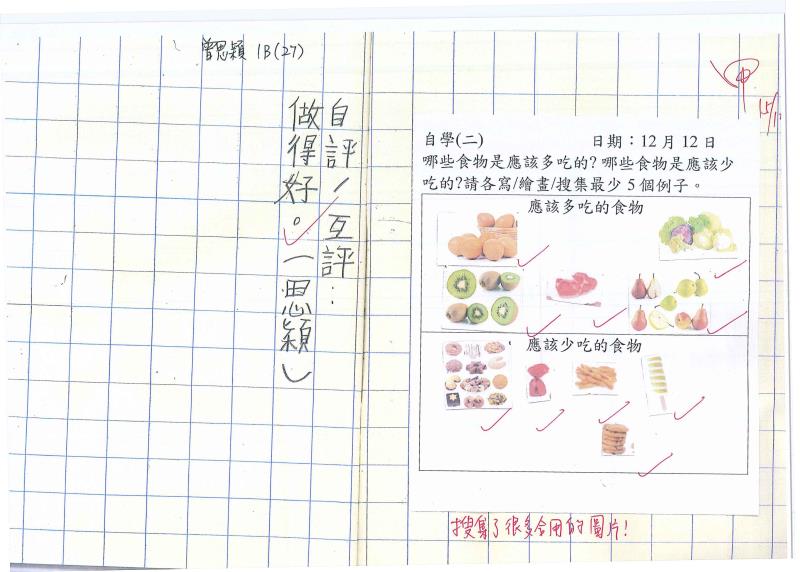 曾思穎 1B(27)
自評/互評：
做得好。(思穎)
甲
自學(二) 日期：12月12日
哪些食物是應該多吃的?哪些食物是應該少
吃的?請各寫/繪畫/搜集最少5個例子。
應該多吃的食物
應該少吃的食物
搜集了很多合用的圖片!